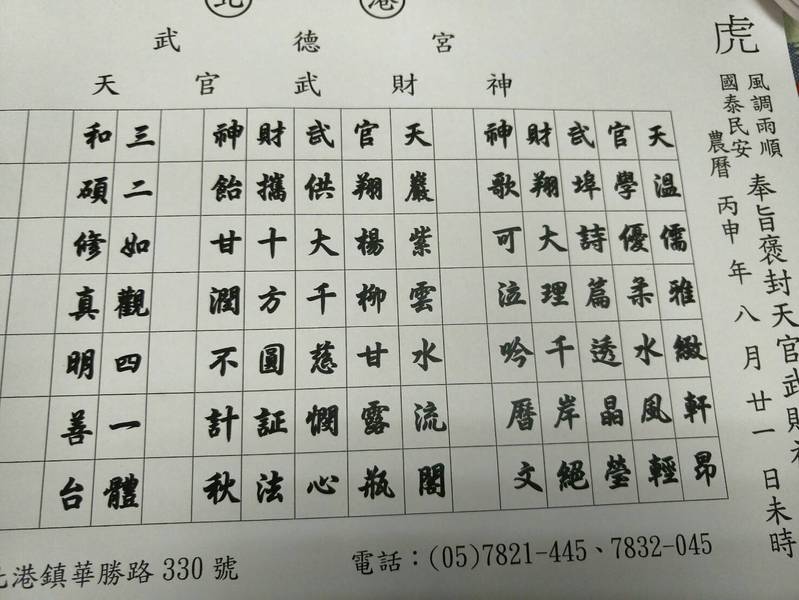 北 港
武德宮
天官武財神
虎
風調雨順
國泰民安
奉旨褒封天官武財
農曆 丙申年八月廿一日未時
天溫儒雅緻軒昂
官學優柔水風輕
武埠詩篇透晶瑩
財翔大理千岸絕
神歌可泣吟曆文
天巖紫雲水流閣
官翔楊柳甘露瓶
武供大千慈憫心
財攜十方圓証法
神飴甘潤不計秋
三二如觀四一體
和碩修真明善台
北港鎮華勝路 330 號
電話：(05)7821-445、7832-045